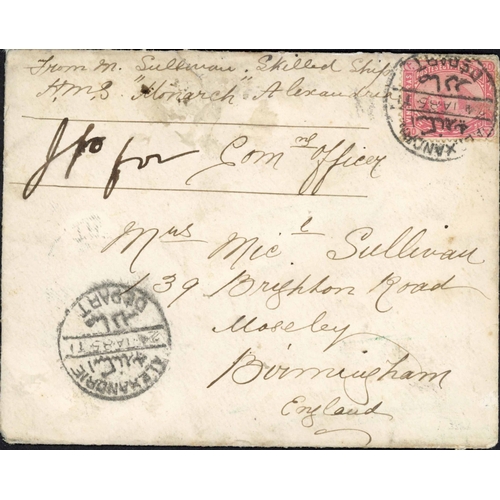 From M. Sullivan, Skilled Ship
H.M.S "Monarch" Alexandria
for Comng Officer
Mrs Micl Sullivan
139 Brighton Road
Moseley
Birmingham
England
ALEXANDRIE
DEPART
ALEXANDRIE
DEPART